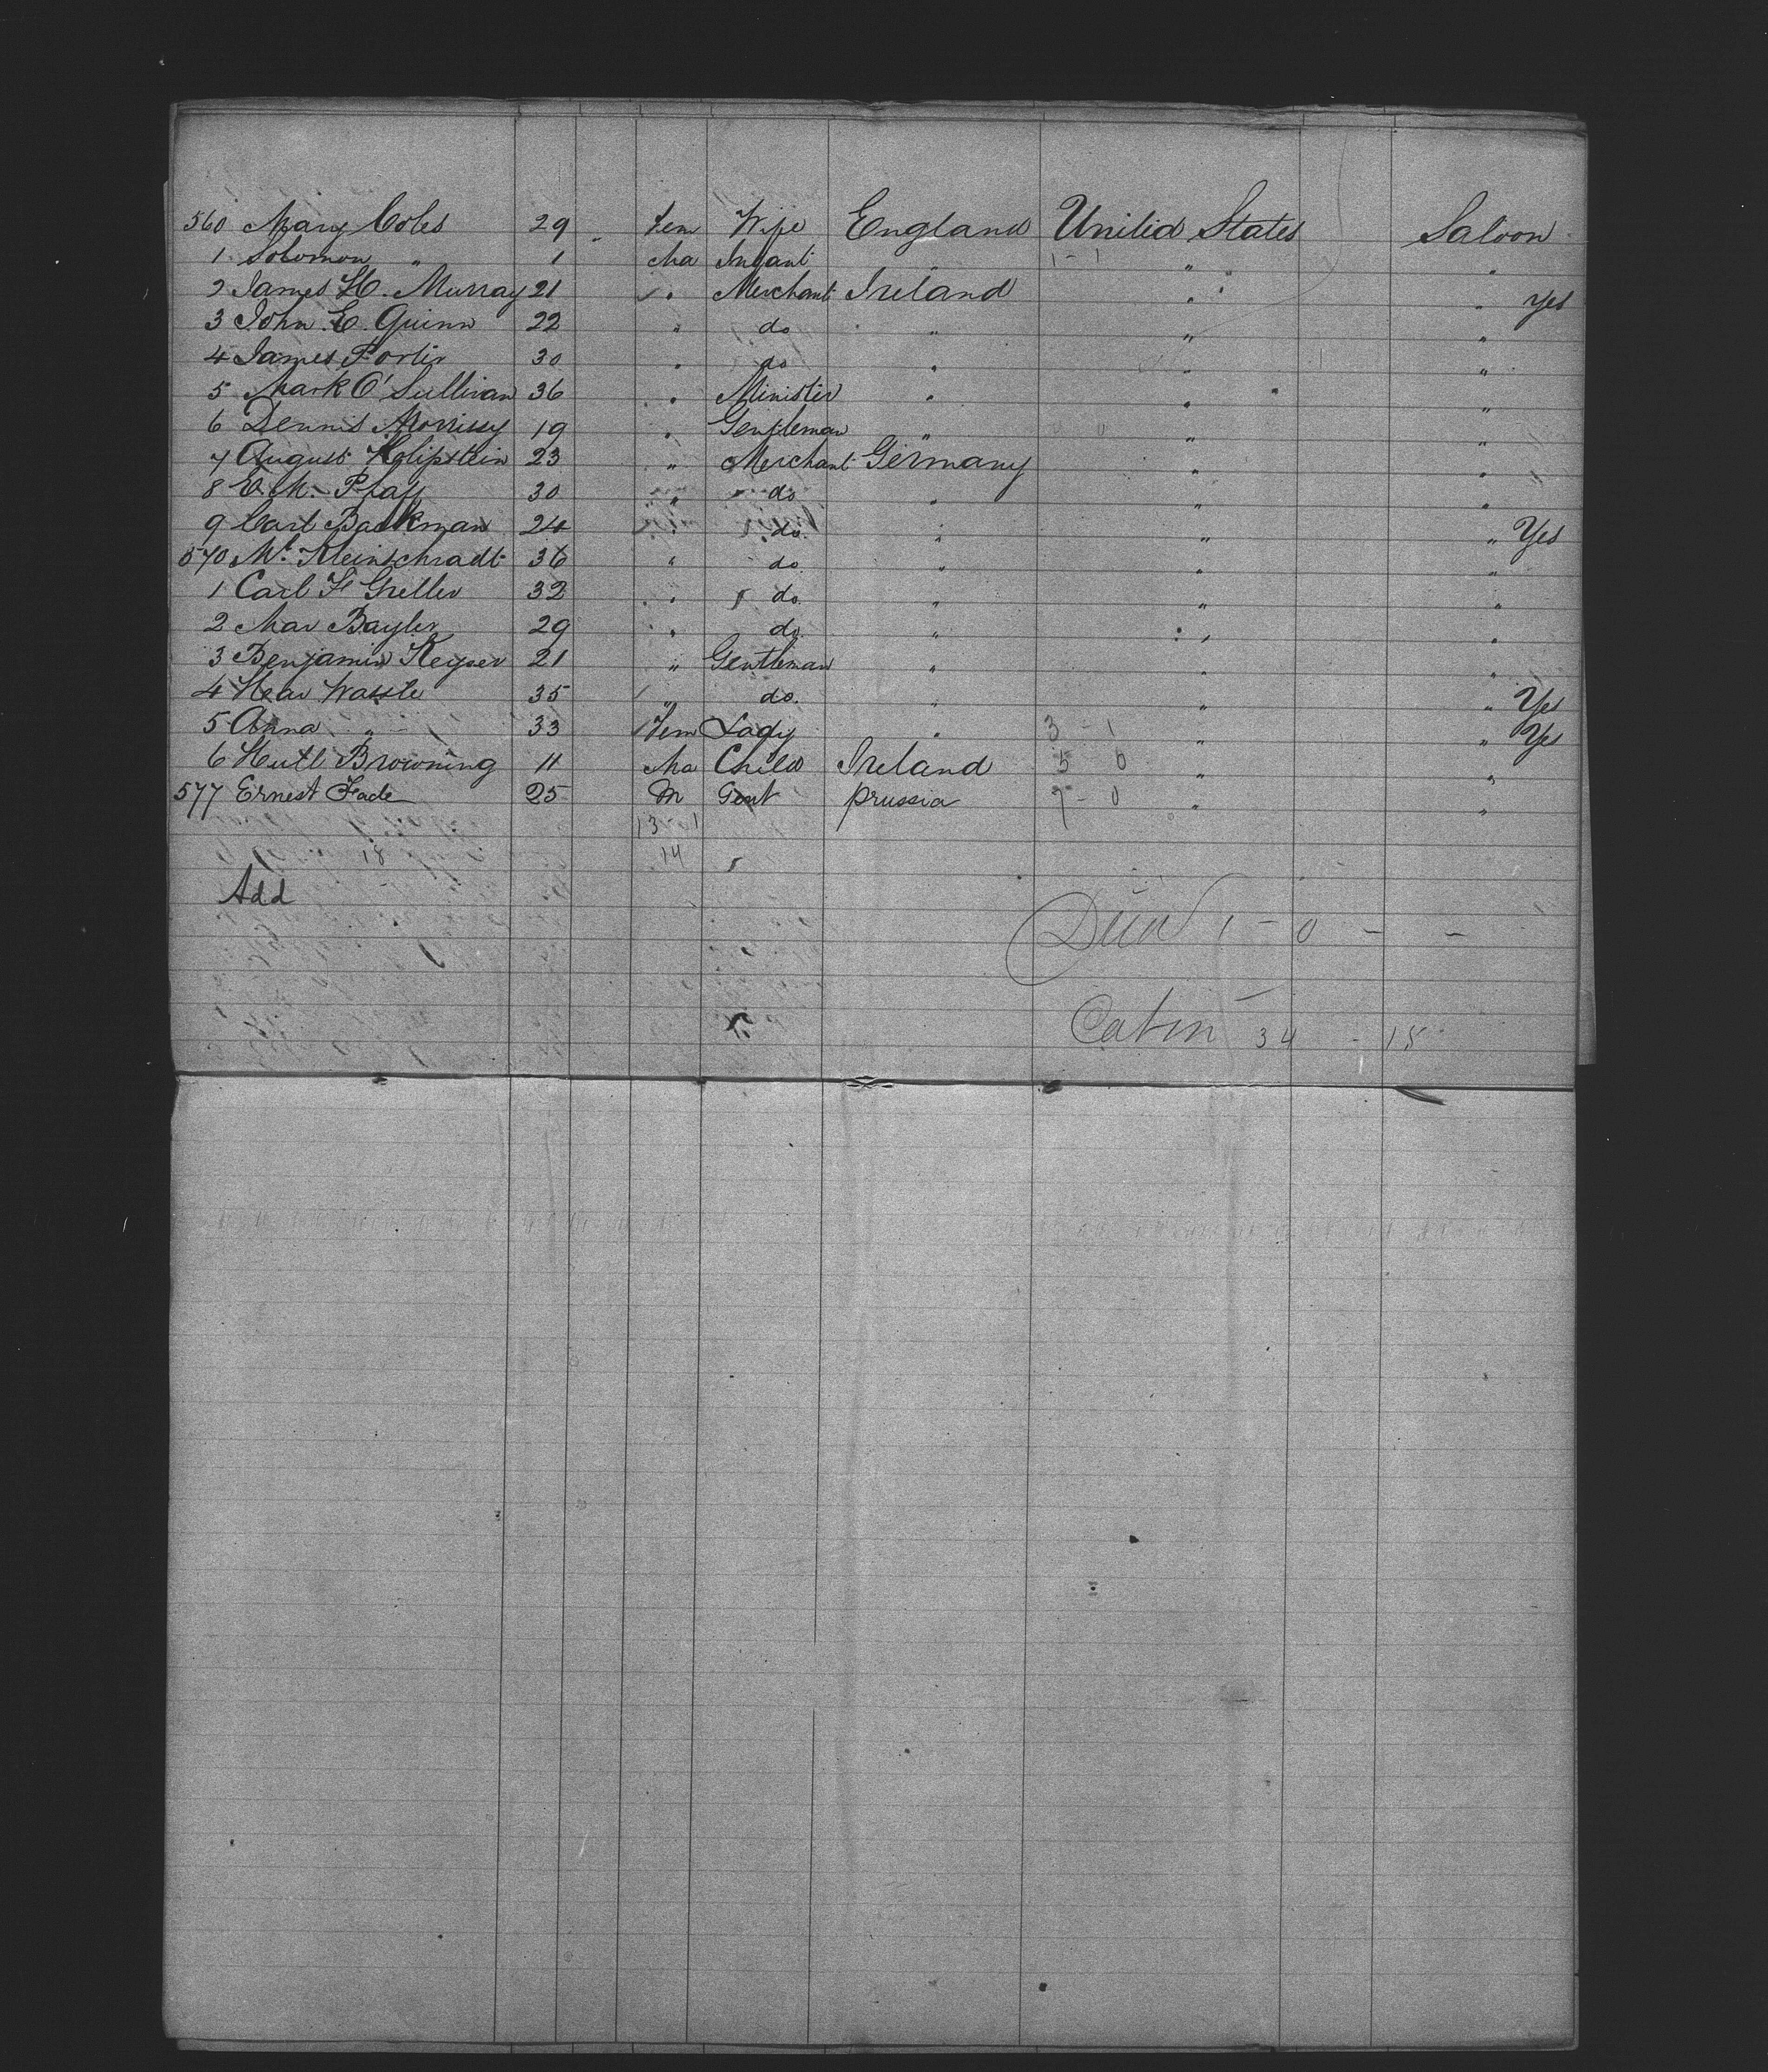 560 Mary Coles 29 Fem Wife England United States Saloon
1 Solomon " 1 Ma Infant " 1-1 " "
2 James H. Murray 21 " Merchant Ireland " " Yes
3 John E. Quinn 22 " do " " "
4 James Porter 30 " do " " "
5 Mark O'Sullivan 36 " Minister " " "
6 Dennis Morrissy 19 " Gentleman " " "
7 August Holipstein 23 " Merchant Germany " "
8 E. M. Pfaff 30 " do " " "
9 Carl Backman 24 " do. " " " Yes
570 Mr. Kleinschradt 36 " do. " " "
1 Carl F Greller 32 " do. " " "
2 Max Bayler 29 " do. " " "
3 Benjamin Keyser 21 " Gentleman " " "
4 Hear Wassle 35 " do. " " " Yes
5 Anna " 33 Fem Lady " 3-1 " " Yes
6 Hutl Browning 11 Ma Child Ireland 5 0 " "
577 Ernest Fade 25 M Gent Prussia 7-0 " "
13 1
18 14
Add
Died 1-0 - -
Cabin 34 - 15